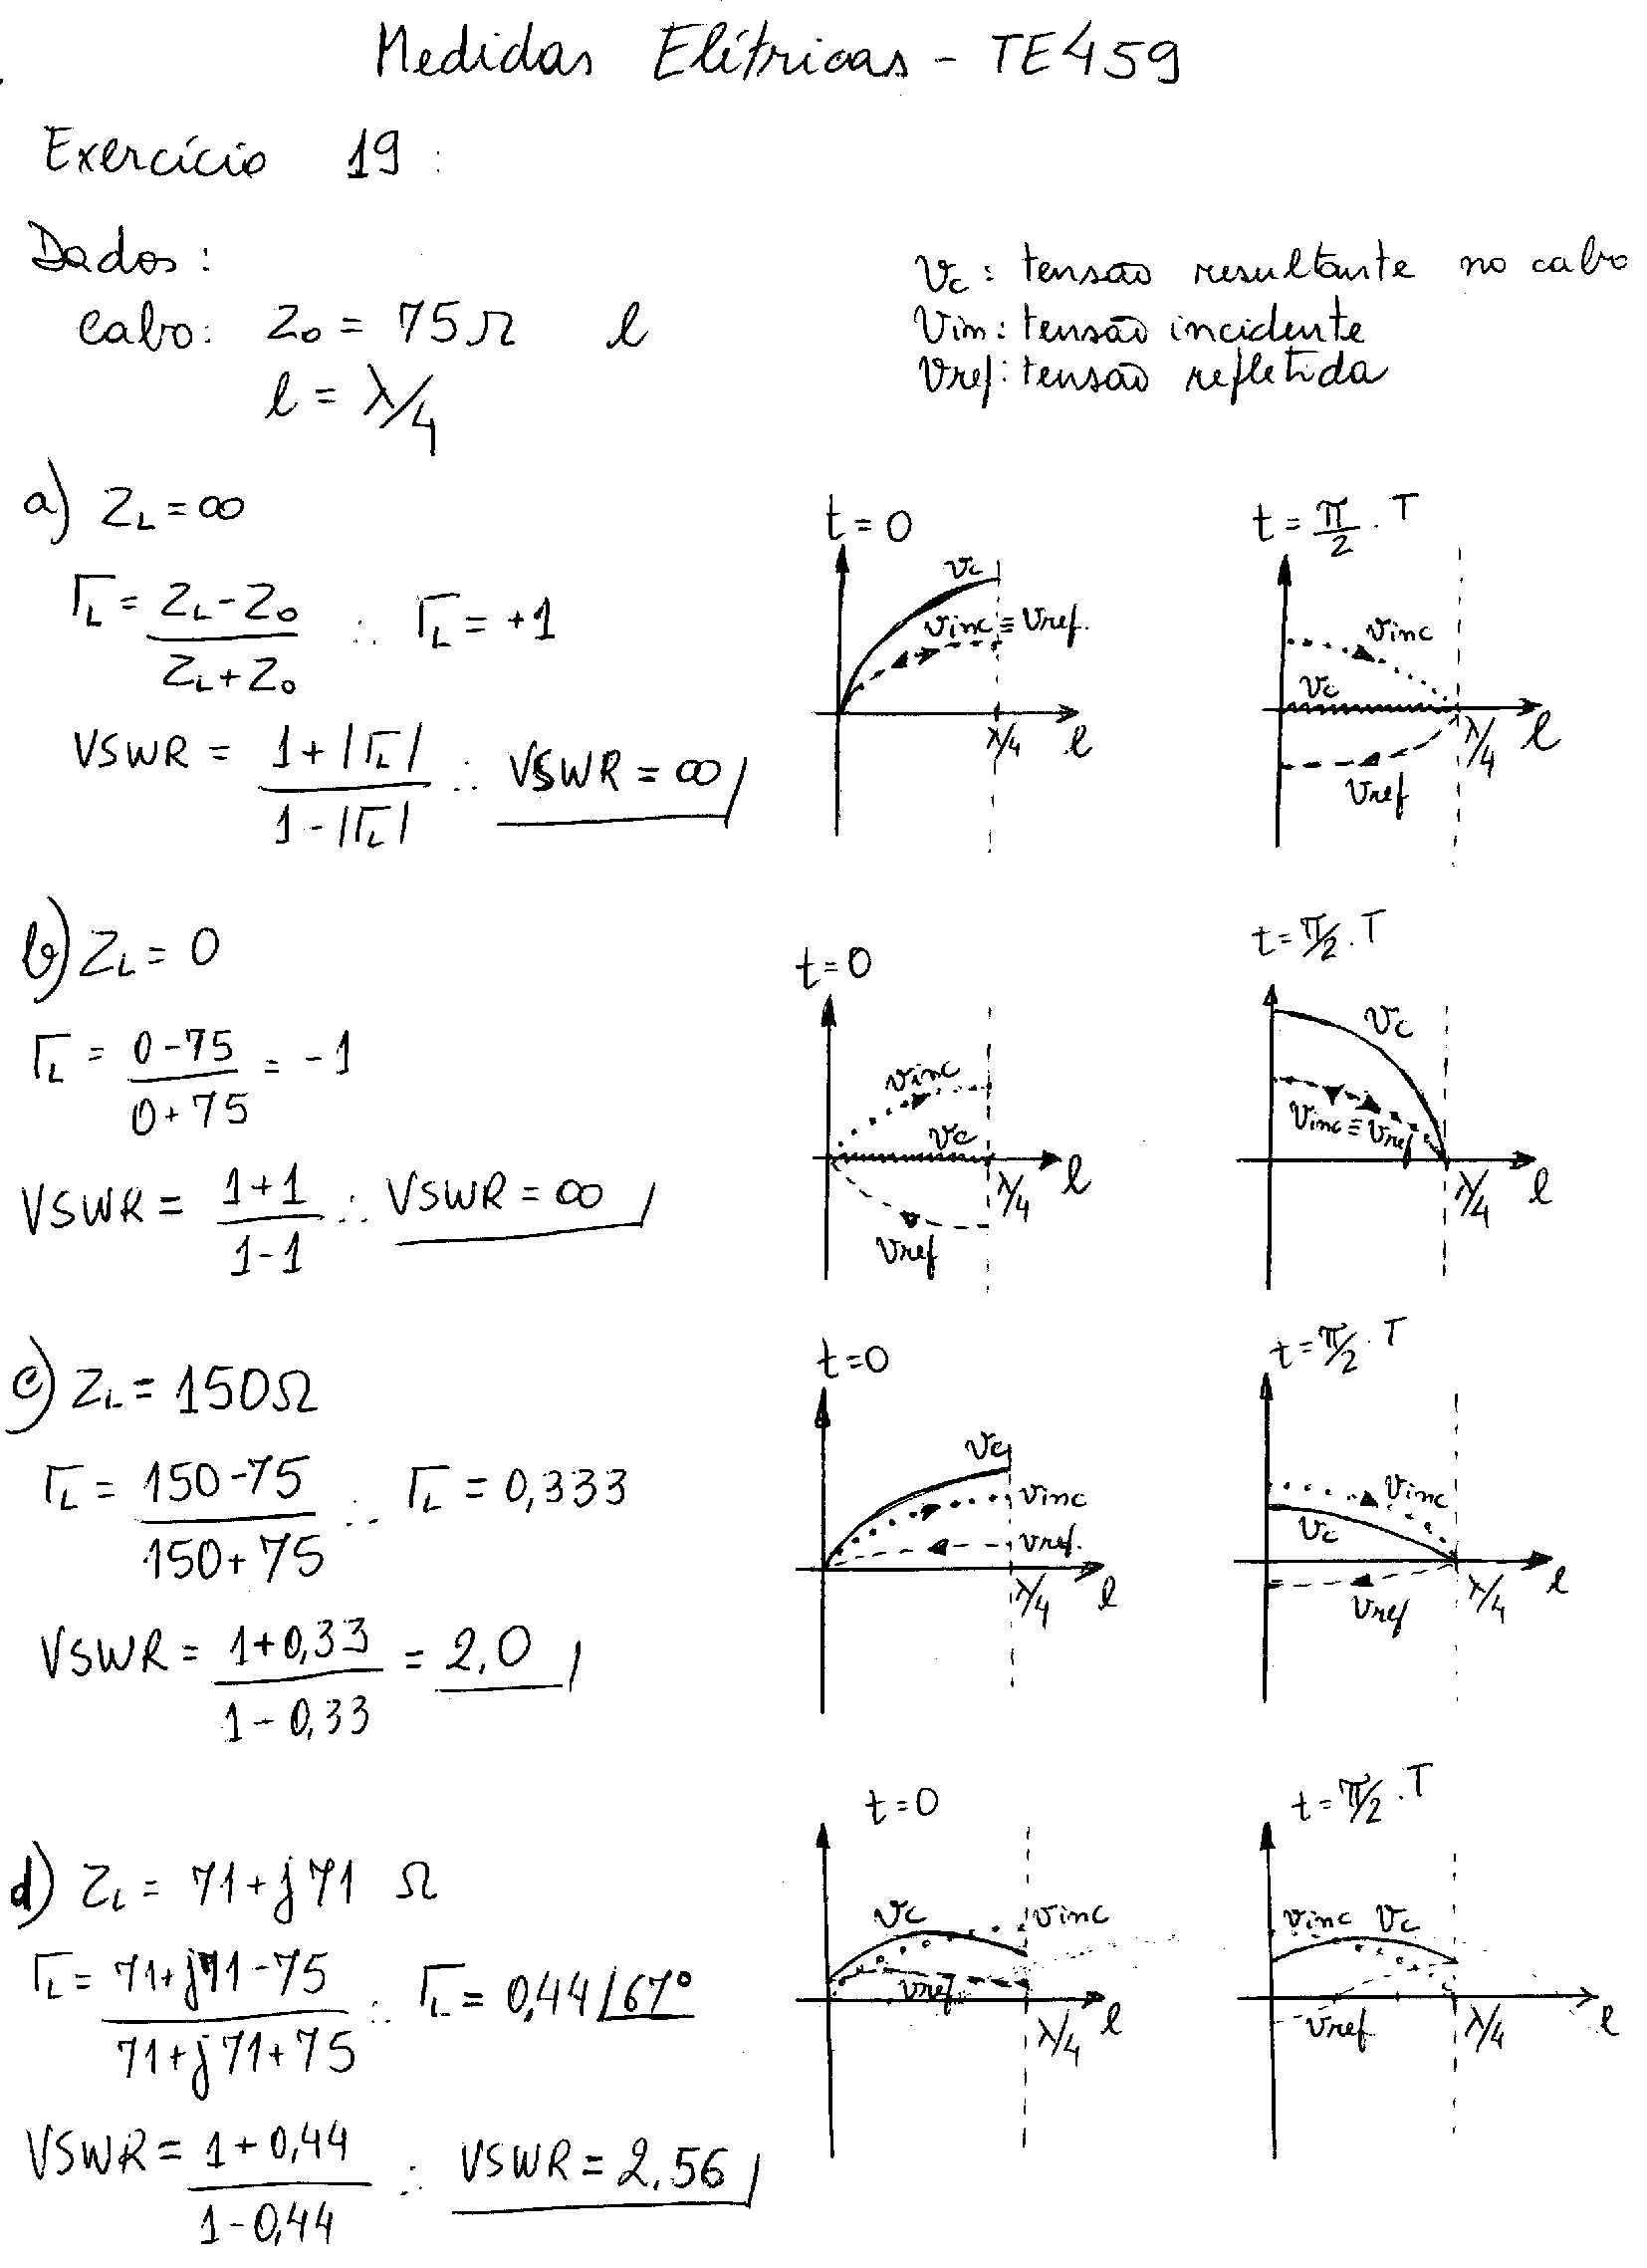 Medidas Elétricas - TE459
Exercício 19:
Dados:
cabo: Z₀ = 75Ω l
l = λ/4
Vc: tensão resultante no cabo
Vin: tensão incidente
Vref: tensão refletida
a) Z_L = ∞
Γ_L = (Z_L - Z₀)/(Z_L + Z₀) ∴ Γ_L = +1
VSWR = (1+|Γ_L|)/(1-|Γ_L|) ∴ VSWR = ∞
t = 0
Vc
Vinc ≡ Vref.
λ/4 l
t = π/2 . T
Vinc
Vc
λ/4 l
Vref
b) Z_L = 0
Γ_L = (0-75)/(0+75) = -1
VSWR = (1+1)/(1-1) ∴ VSWR = ∞
t=0
Vinc
Vc
λ/4 l
Vref
t = π/2 . T
Vc
Vinc ≡ Vref
λ/4 l
c) Z_L = 150Ω
Γ_L = (150-75)/(150+75) ∴ Γ_L = 0,333
VSWR = (1+0,33)/(1-0,33) = 2,0
t=0
Vc
Vinc
Vref.
λ/4 l
t = π/2 . T
Vinc
Vc
Vref λ/4 l
d) Z_L = 71+j71 Ω
Γ_L = (71+j71-75)/(71+j71+75) ∴ Γ_L = 0,44∠67°
VSWR = (1+0,44)/(1-0,44) ∴ VSWR = 2,56
t=0
Vc Vinc
Vref
λ/4 l
t = π/2 . T
Vinc Vc
Vref λ/4 l